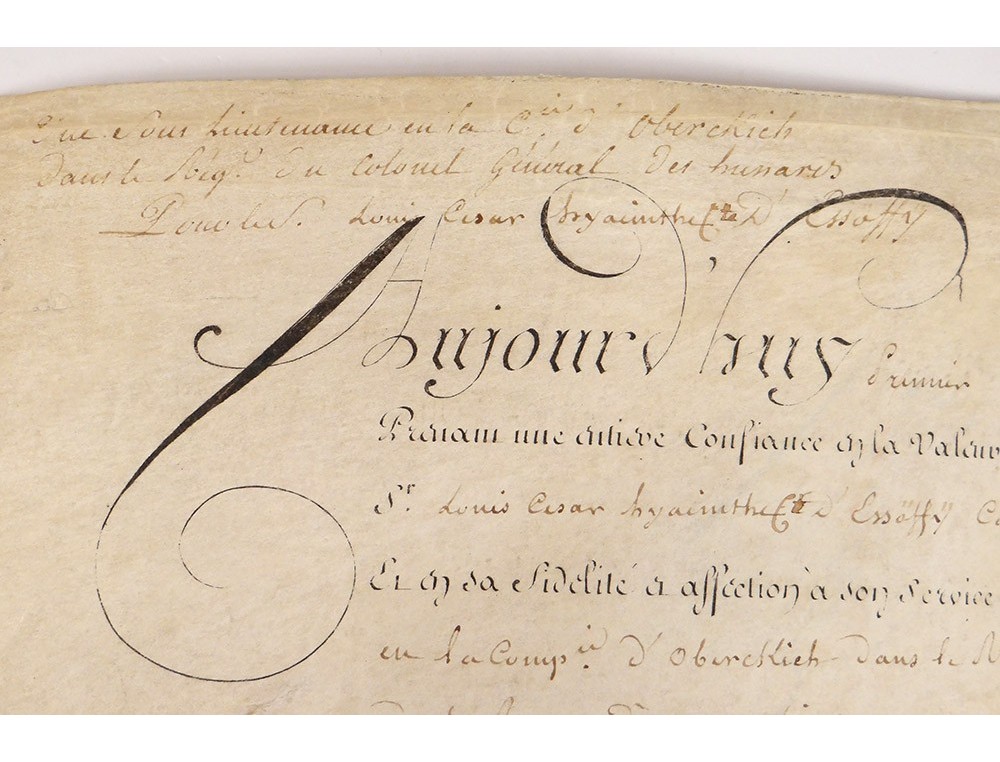 Une Sous Lieutenance en la C.ie d'Oberckich
Dans le Rég.t du Colonel Général des hussards
Pour le S. Louis Cesar hyacinthe C.te D'Essöffy
Aujourd'huy Premier
Prenant une entiere Confiance en la Valeur
S.r Louis Cesar hyacinthe C.te D'Essöffÿ
Et en sa Fidelité et affection à son Service
en la Comp.ie d'Oberckich dans le